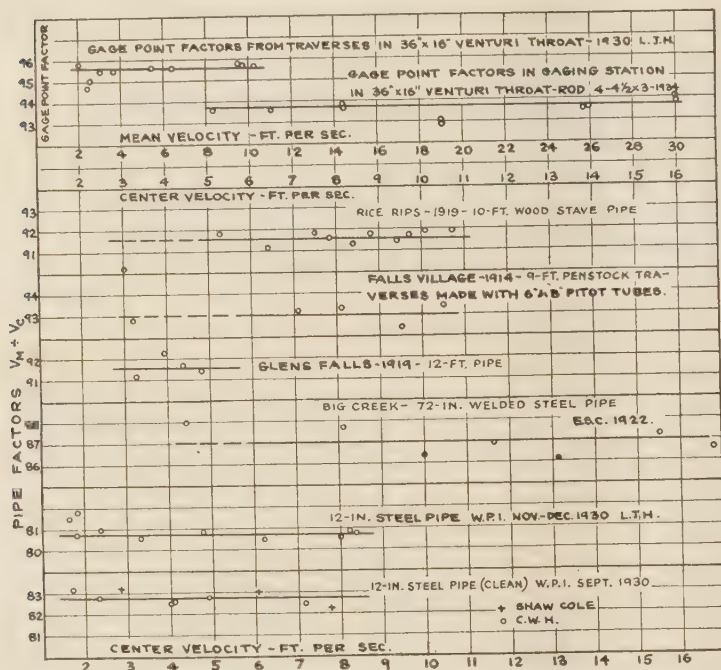 GAGE POINT FACTORS FROM TRAVERSES IN 36"x16" VENTURI THROAT-1930 L.T.H.
GAGE POINT FACTOR
96
95
94
93
GAGE POINT FACTORS IN GAGING STATION
IN 36"x16" VENTURI THROAT-ROD 4-4½x3-1934
MEAN VELOCITY - FT. PER SEC.
2 4 6 8 10 12 14 18 20 24 26 28 30
1 2 3 4 5 6 7 8 9 10 11 12 13 14 15 16
CENTER VELOCITY - FT. PER SEC.
93
92
91
RICE RIPS-1919-10-FT. WOOD STAVE PIPE
FALLS VILLAGE-1914-9-FT. PENSTOCK TRA-
VERSES MADE WITH 6" & 8" PITOT TUBES.
94
93
92
91
GLENS FALLS-1919-12-FT. PIPE
BIG CREEK-72-IN. WELDED STEEL PIPE
E.S.C. 1922.
87
86
PIPE FACTORS VM ÷ VC
12-IN. STEEL PIPE W.P.I. NOV.-DEC. 1930 L.T.H.
81
80
12-IN. STEEL PIPE (CLEAN) W.P.I. SEPT. 1930
83
82
81
+ SHAW COLE
o C.W.H.
CENTER VELOCITY - FT. PER SEC.
2 3 4 5 6 7 8 9 10 11 12 13 14 15 16